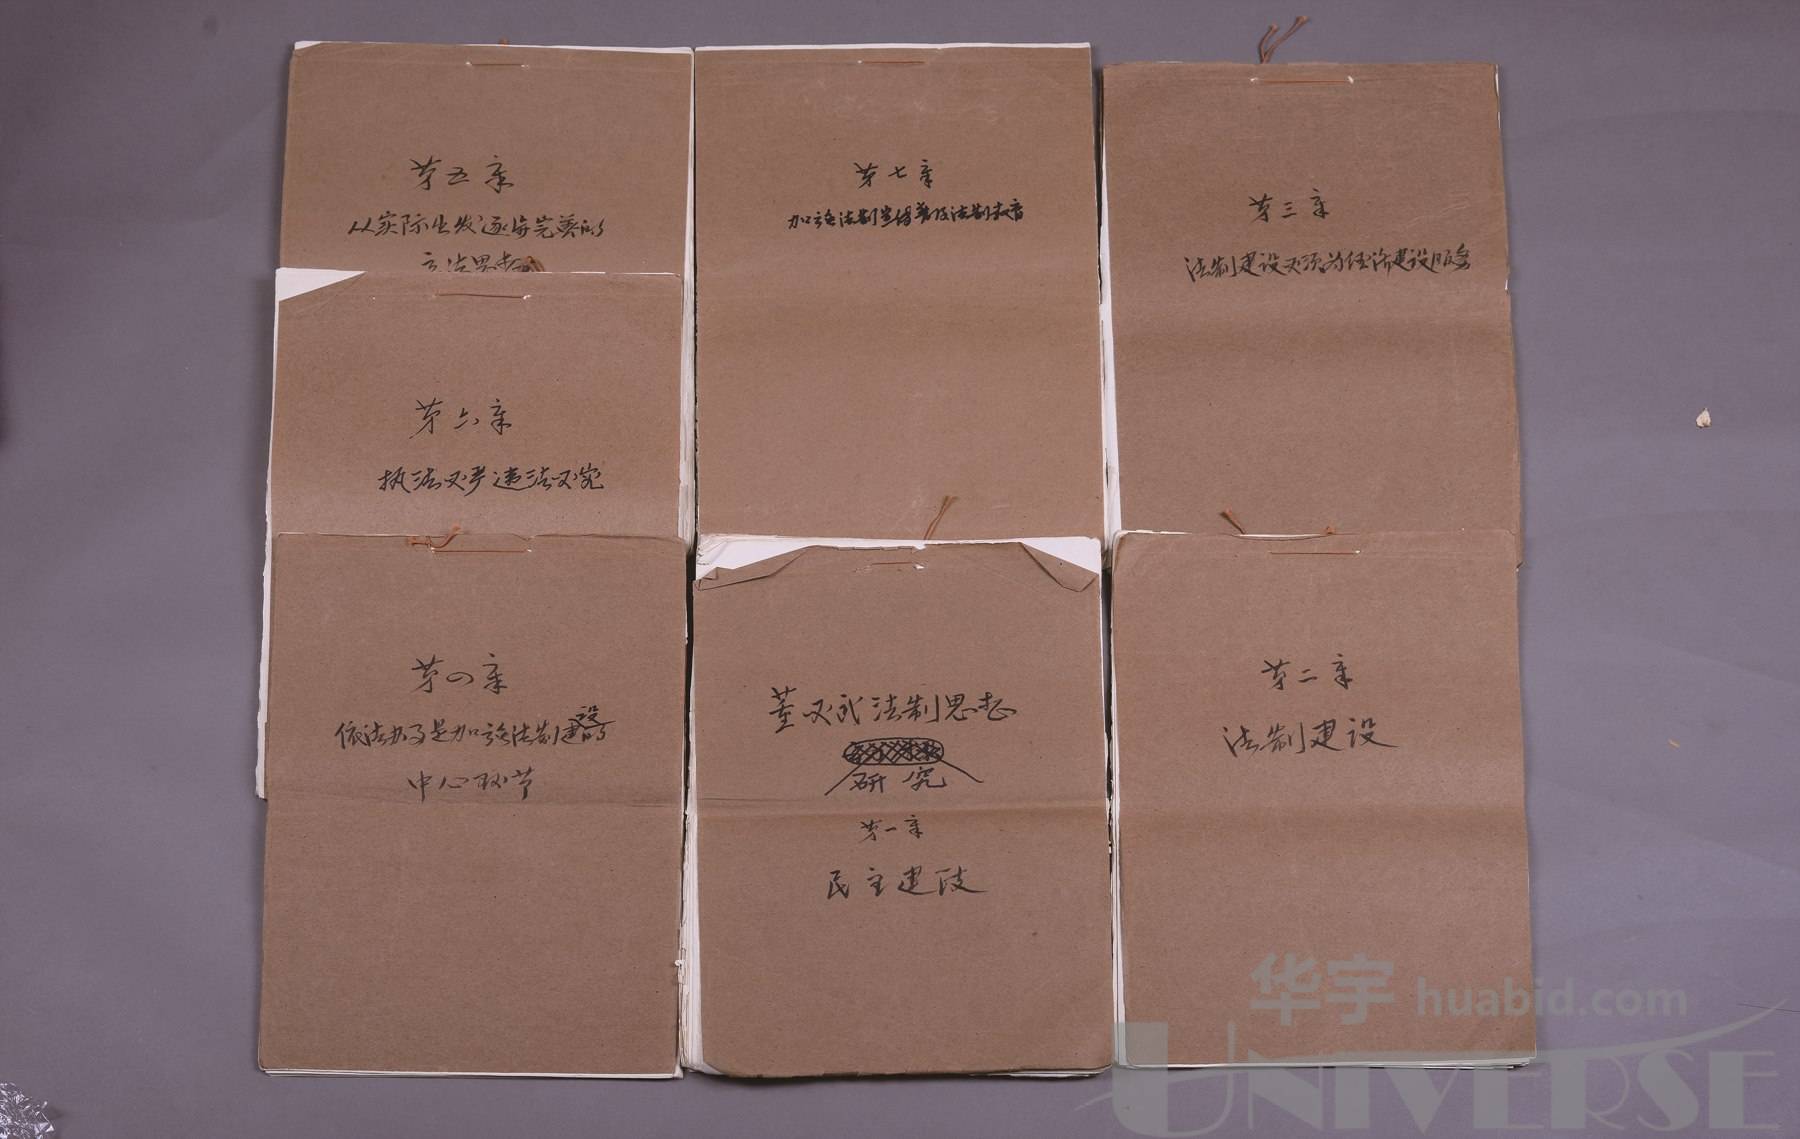 第五章
从实际出发逐步完善的
立法思想
第七章
加强法制宣传普及法制教育
第三章
法制建设必须为经济建设服务
第六章
执法必严违法必究
第四章
依法办事是加强法制建设的
中心环节
董必武法制思想
研究
第一章
民主建政
第二章
法制建设
华宇 huabid.com
UNIVERSE